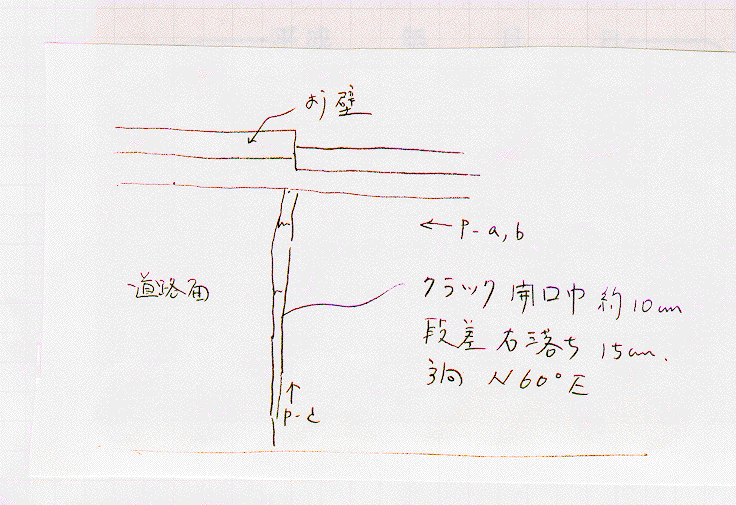 よう壁
← P-a,b
道路面
クラック 開口巾 約10cm
段差 右落ち 15cm.
方向 N60°E
↑
P-c